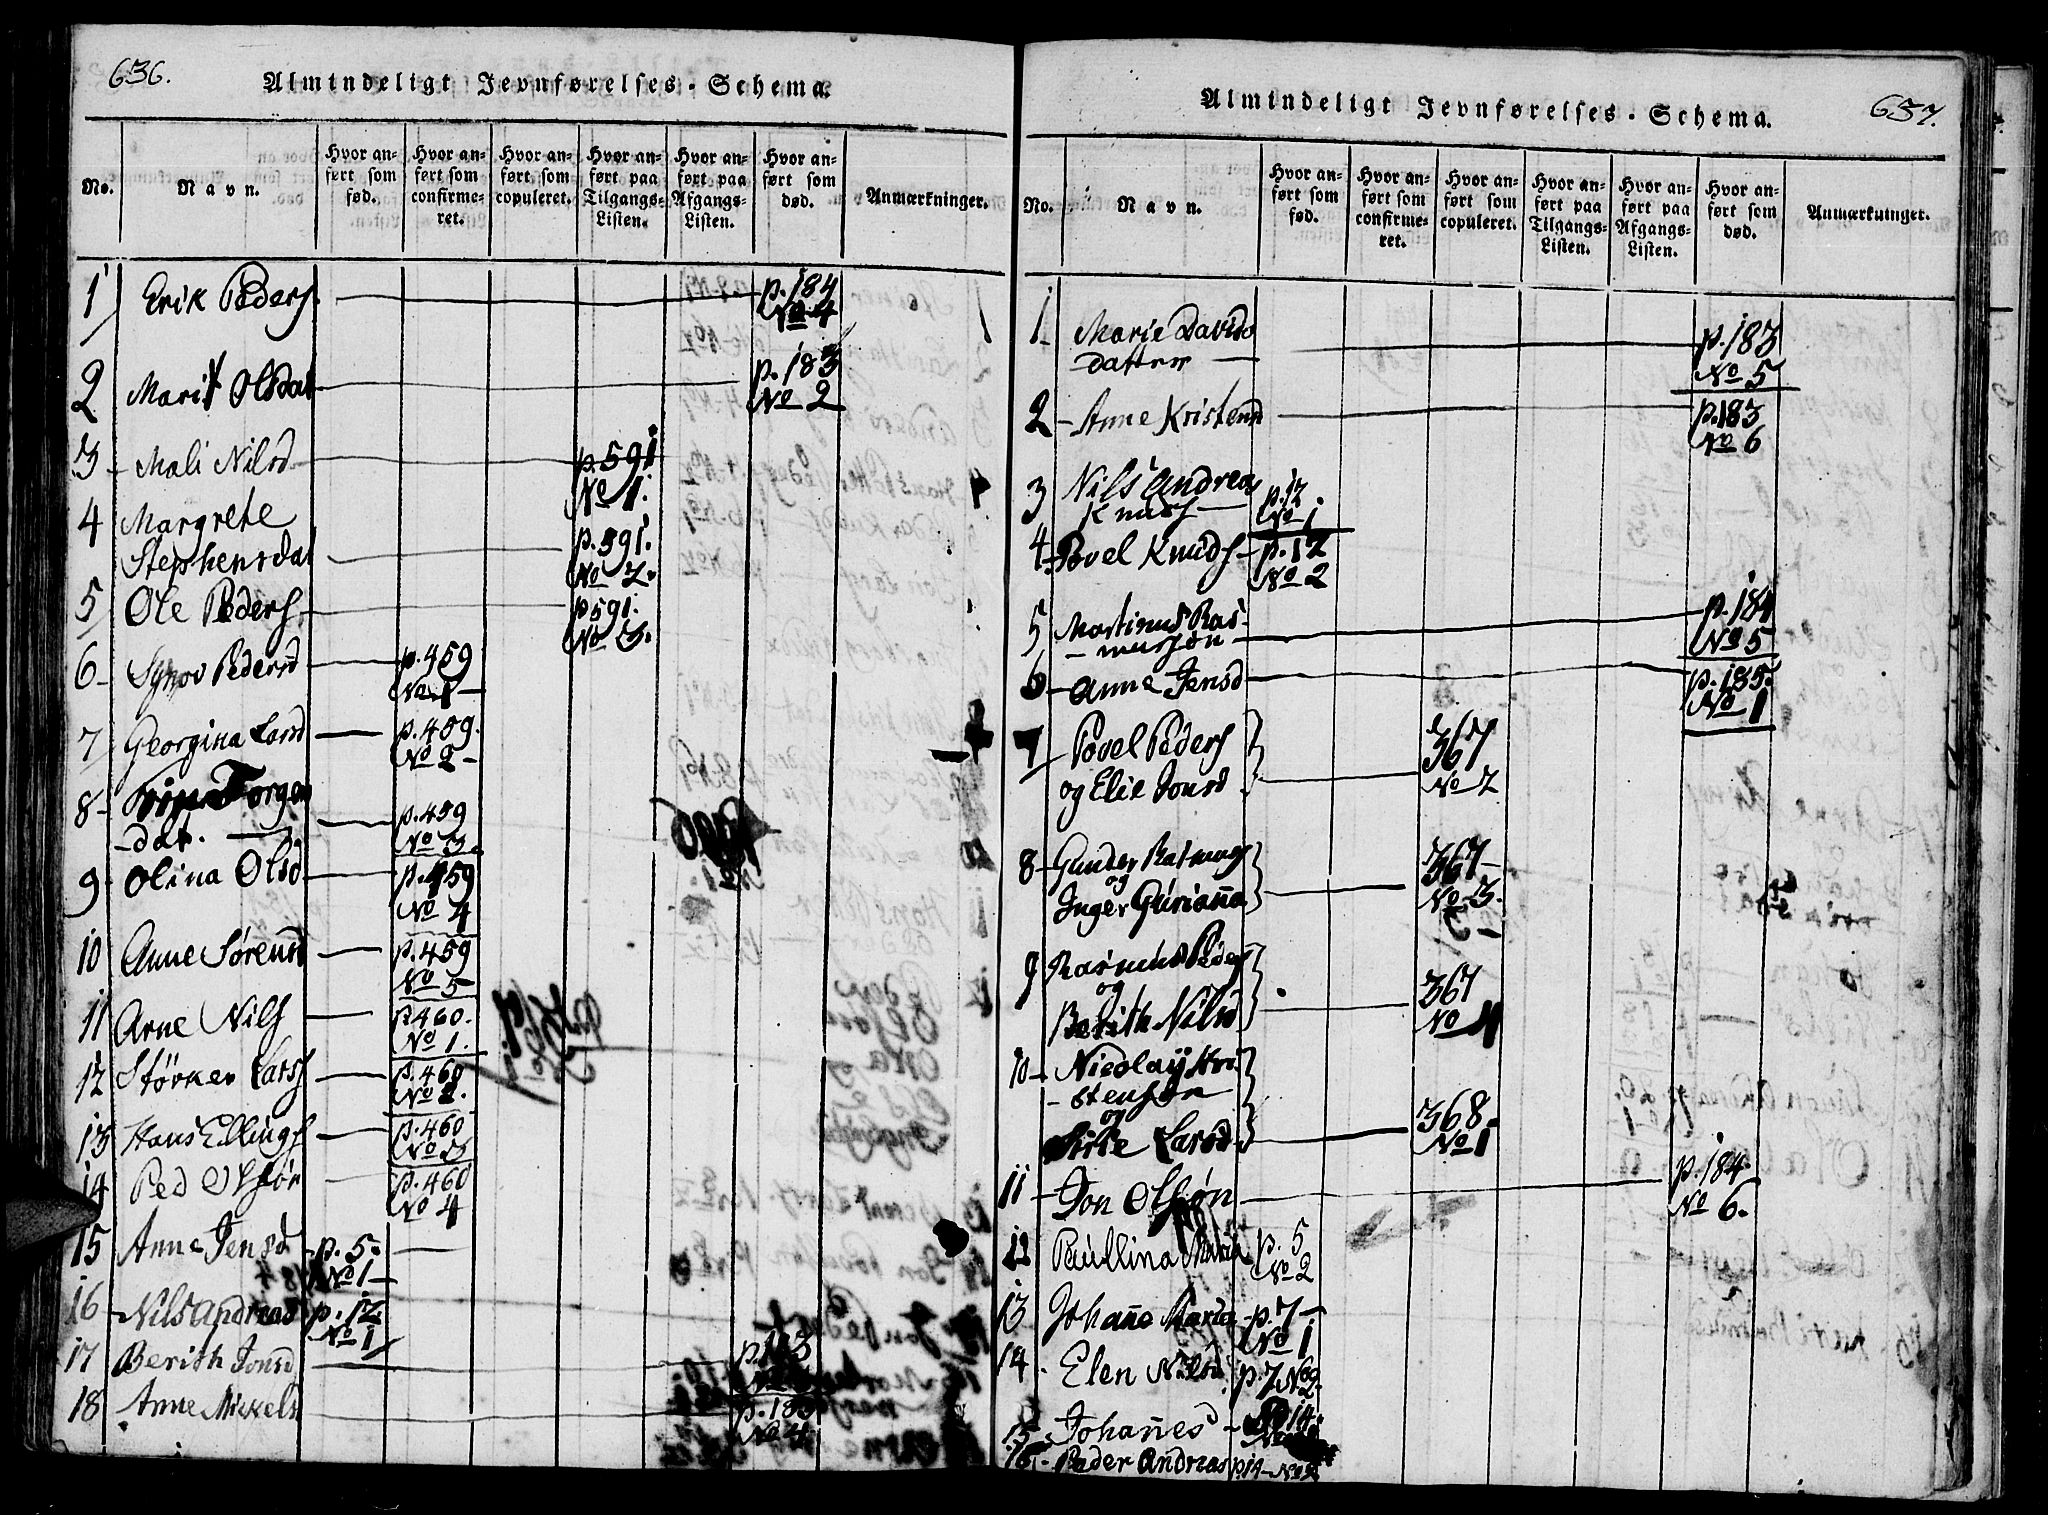 636.
Almindeligt Jevnførelses-Schema.
No.
Navn.
Hvor an-
ført som
fød.
Hvor an-
ført som
confirme-
ret.
Hvor an-
ført som
copuleret.
Hvor an-
ført paa
Tilgangs-
Listen.
Hvor an-
ført paa
Afgangs-
Listen.
Hvor an-
ført som
død.
Anmærkninger.
1 Erik Peders p. 184
No 4
2 Marit Olsdat p. 183
No 2
3 Mali Nilsd p. 591
No 1.
4 Margrete
Stephensdat p. 591.
No 2.
5 Ole Peders p 591.
No 3.
6 Synov Pedersd p. 459
No 1
7 Georgina Larsd p. 459.
No 2
8 Torgers
dat. p. 459
No 3.
9 Olina Olsd p. 459
No 4
10 Anne Sørensd p. 459
No 5
11 Arne Nils p 460.
No 1.
12 Størker Lars p. 460
No 2.
13 Hans Ellings p. 460
No 3
14 Ped Olssøn p. 460
No 4
15 Anne Jensd p. 5.
No 1
16 Nils Andreas p. 12
No 1
17 Berith Jonsd p. 183
18 Anne Mickelsd p. 183
No 4
Almindeligt Jevnførelses-Schema.
637.
No.
Navn.
Hvor an-
ført som
fød.
Hvor an-
ført som
confirme-
ret.
Hvor an-
ført som
copuleret.
Hvor an-
ført paa
Tilgangs-
Listen.
Hvor an-
ført paa
Afgangs-
Listen.
Hvor an-
ført som
død.
Anmærkninger.
1 Marie Davids
datter p. 183
No 5
2 Anne Kristensd p. 183
No 6
3 Nils Andreas
Knuds p. 12.
No 1
4 Povel Knuds p. 12
No 2
5 Martinus Ras-
mussøn p. 184
No 5
6 Anne Jensd p. 185.
No 1
7 Povel Peders
og Elie Jonsd 367
No 2
8 Gunder Rasmus
og
Inger Guriana 367
No 3.
9 Rasmus Peders
og
Berith Nilsd 367
No 4
10 Nicolay Kri-
stensøn
og
Larsd 368.
No 1
11 Jon Olssøn p. 184.
No 6.
12 Paullina Maria p. 5
No 2
13 Johanne Maria p. 7
No 1
14 Elen Nilsd p. 7 No 2
15 Johannes p 14.
16 Peder Andreas p 14 No 2